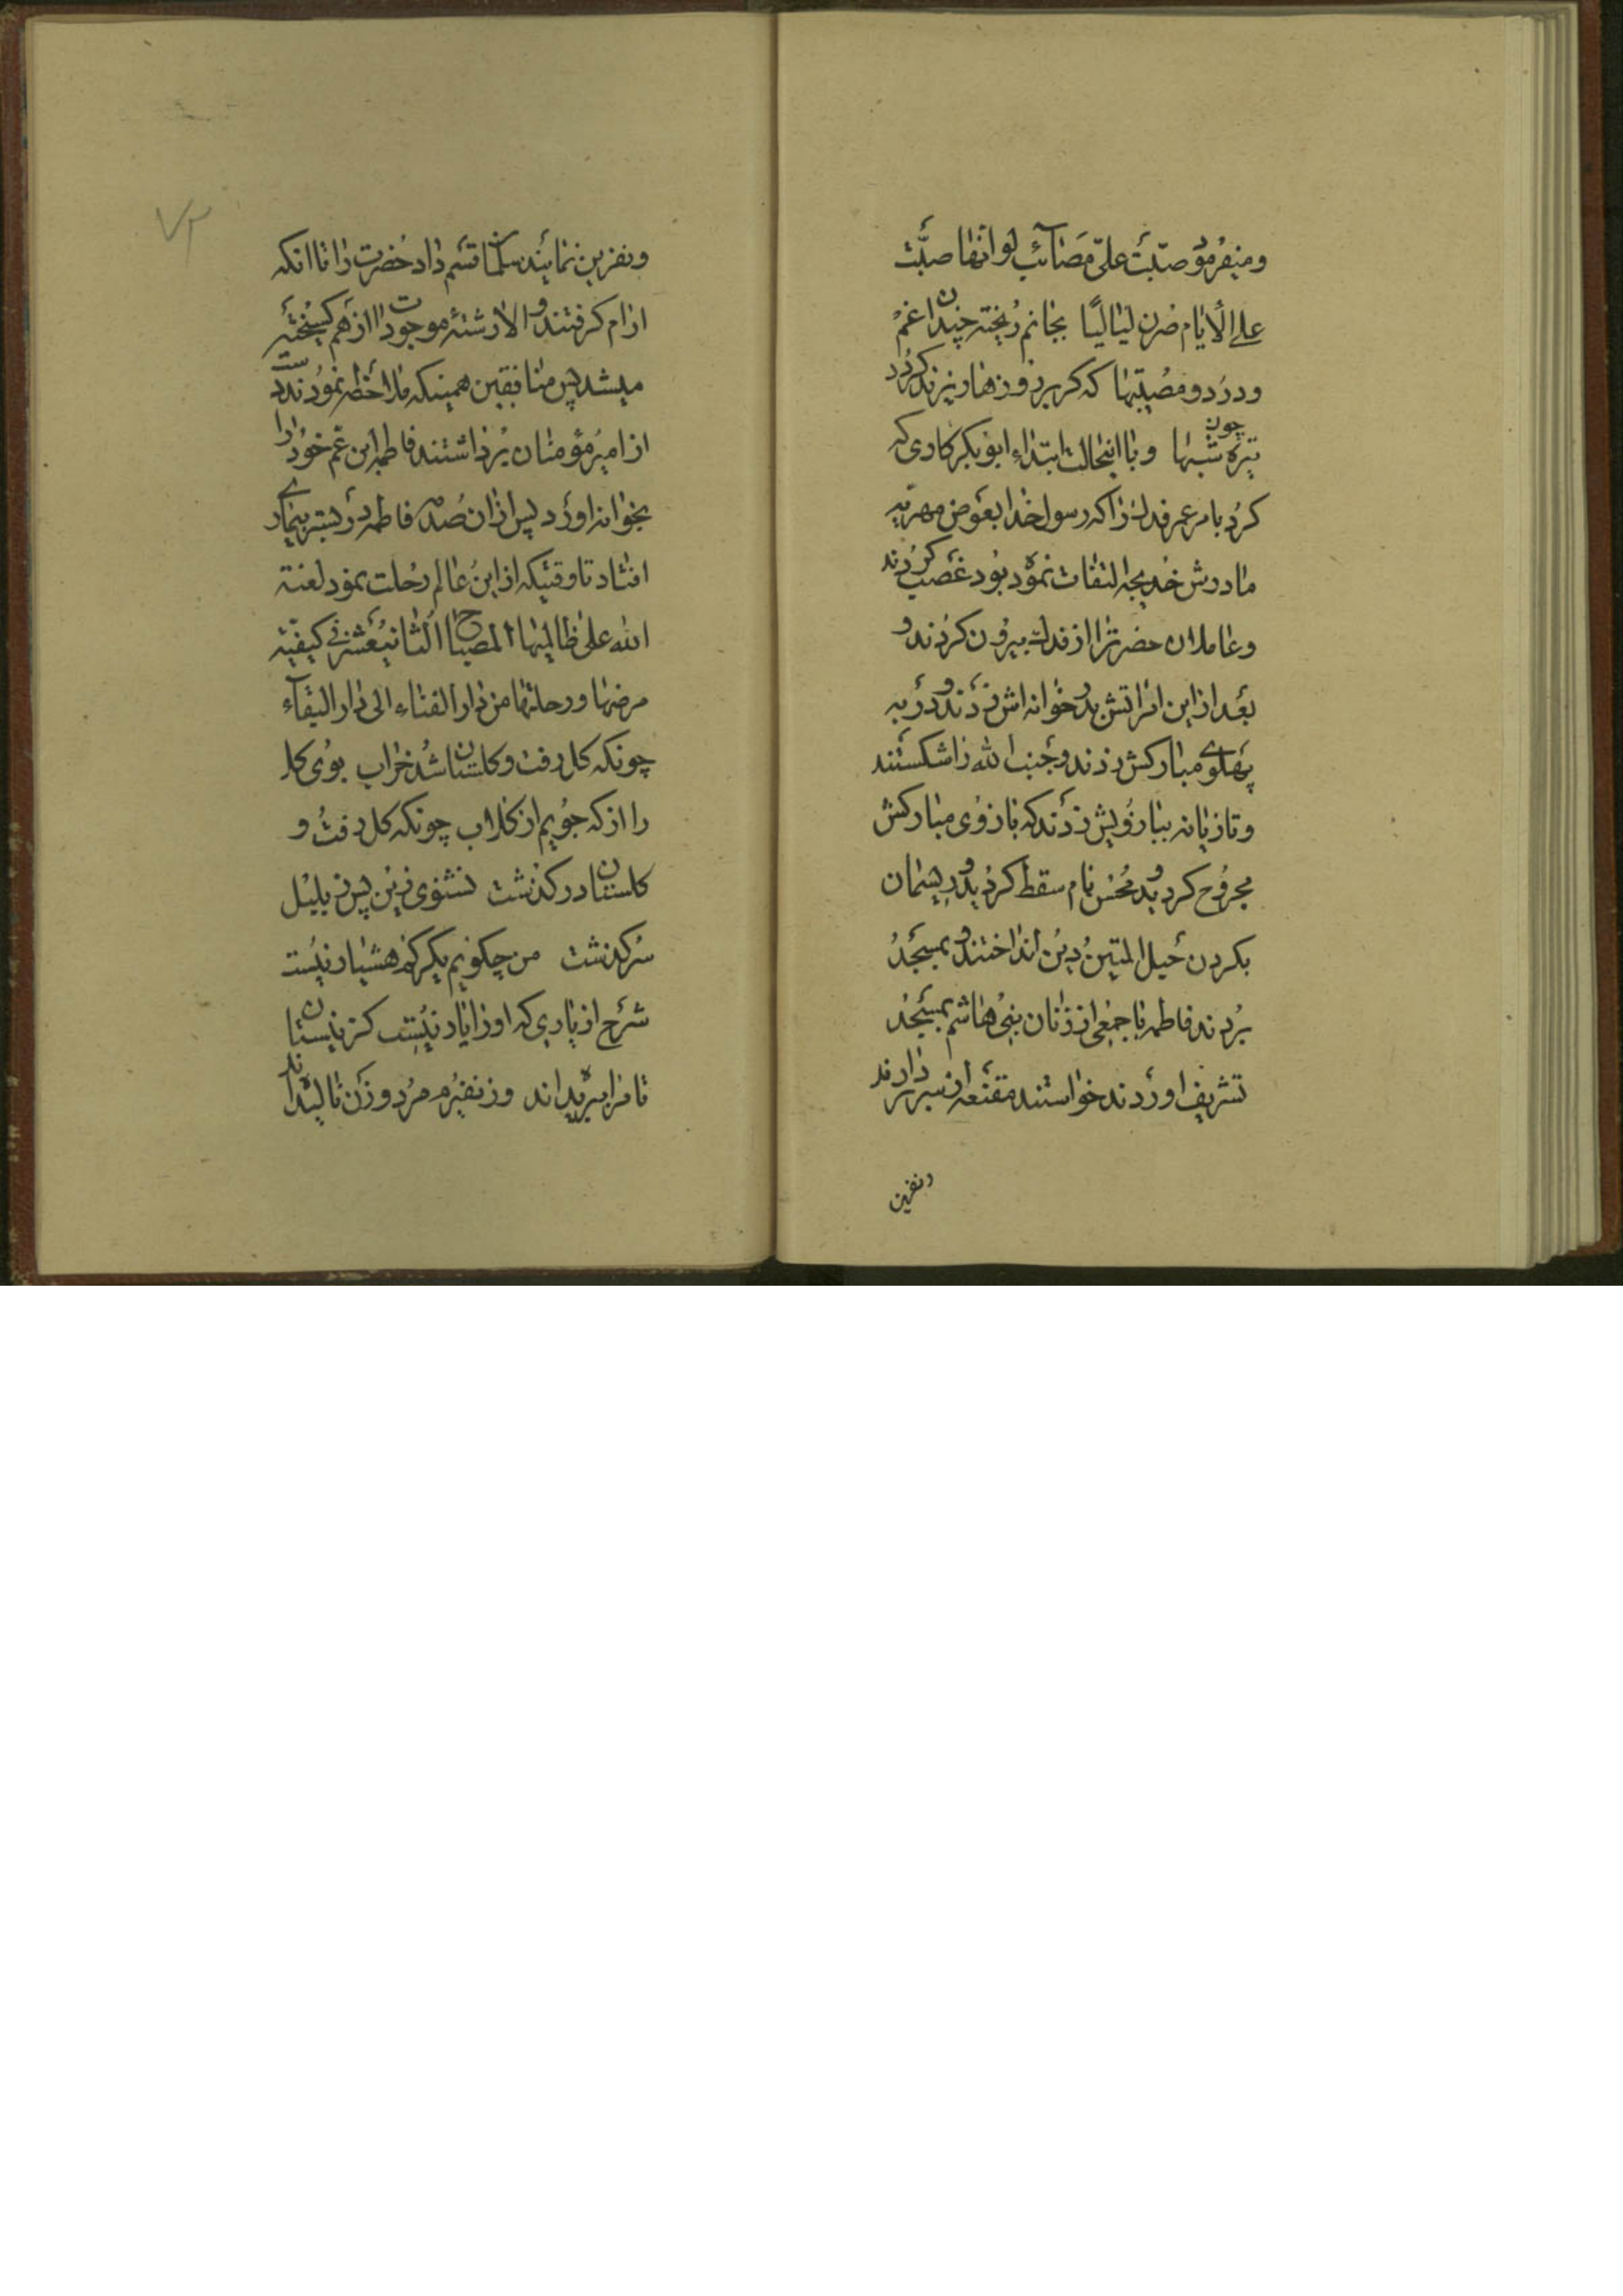 ومیفرمود صبّت علیّ مَصَآئب لو انّها صبّت
علی الأیام صرن لیالیًا بجانم ریخته چندان غم
و درد و مصیبتها که گر بر روزها ریزند گردد
تیره چون شبها و با اینحالت ابتداء ابوبکر کاری که
کرد بامر عمر فدک را که رسول خدا بعوض مهریه
مادرش خدیجه التفات نموده بود غصب کردند
و عاملان حضرترا از فدک بیرون کردند و
بعد از این امر اتش بدر خوانه اش زدند و در به
پهلوے مبارکش زدند و جنب الله را شکستند
و تازیانه ببازویش زدند که بازوی مبارکش
مجروح گردید و محسن نام سقط گردید و ریسمان
بگردن حبل المتین دین انداختند و بمسجد
بردند فاطمه با جمعی از زنان بنی هاشم بمسجد
تشریف اوردند خواستند مقنعه از سر بردارند
و نفرین
و نفرین نمایند سلمان قسم داد حضرت را تا انکه
ارام گرفتند و الا رشتهٔ موجودات از هم گسیخته
میشد پس منافقین همینکه ملاحظه نمودند دست
از امیر مؤمنان برداشتند فاطمه ابن عم خود را
بخوانه اورد پس از ان صدمه فاطمه در بستر بیمارے
افتاد تا وقتیکه از این عالم رحلت نمود لعنة
الله علی ظالمیها المصباح الثانیعشر فی کیفیّة
مرضها و رحلتها من دار الفناء الی دار البقآء
چونکه گل رفت و گلستان شد خراب بوی گل
را از که جویم از گلاب چونکه گل رفت و
گلستان در گذشت نشنوی زین پس ز بلبل
سرگذشت من چگویم یکرگم هشیار نیست
شرح از یاری که او را یار نیست کز نیستان
تا مرا ببریده اند وز نفیرم مرد و زن نالیده اند